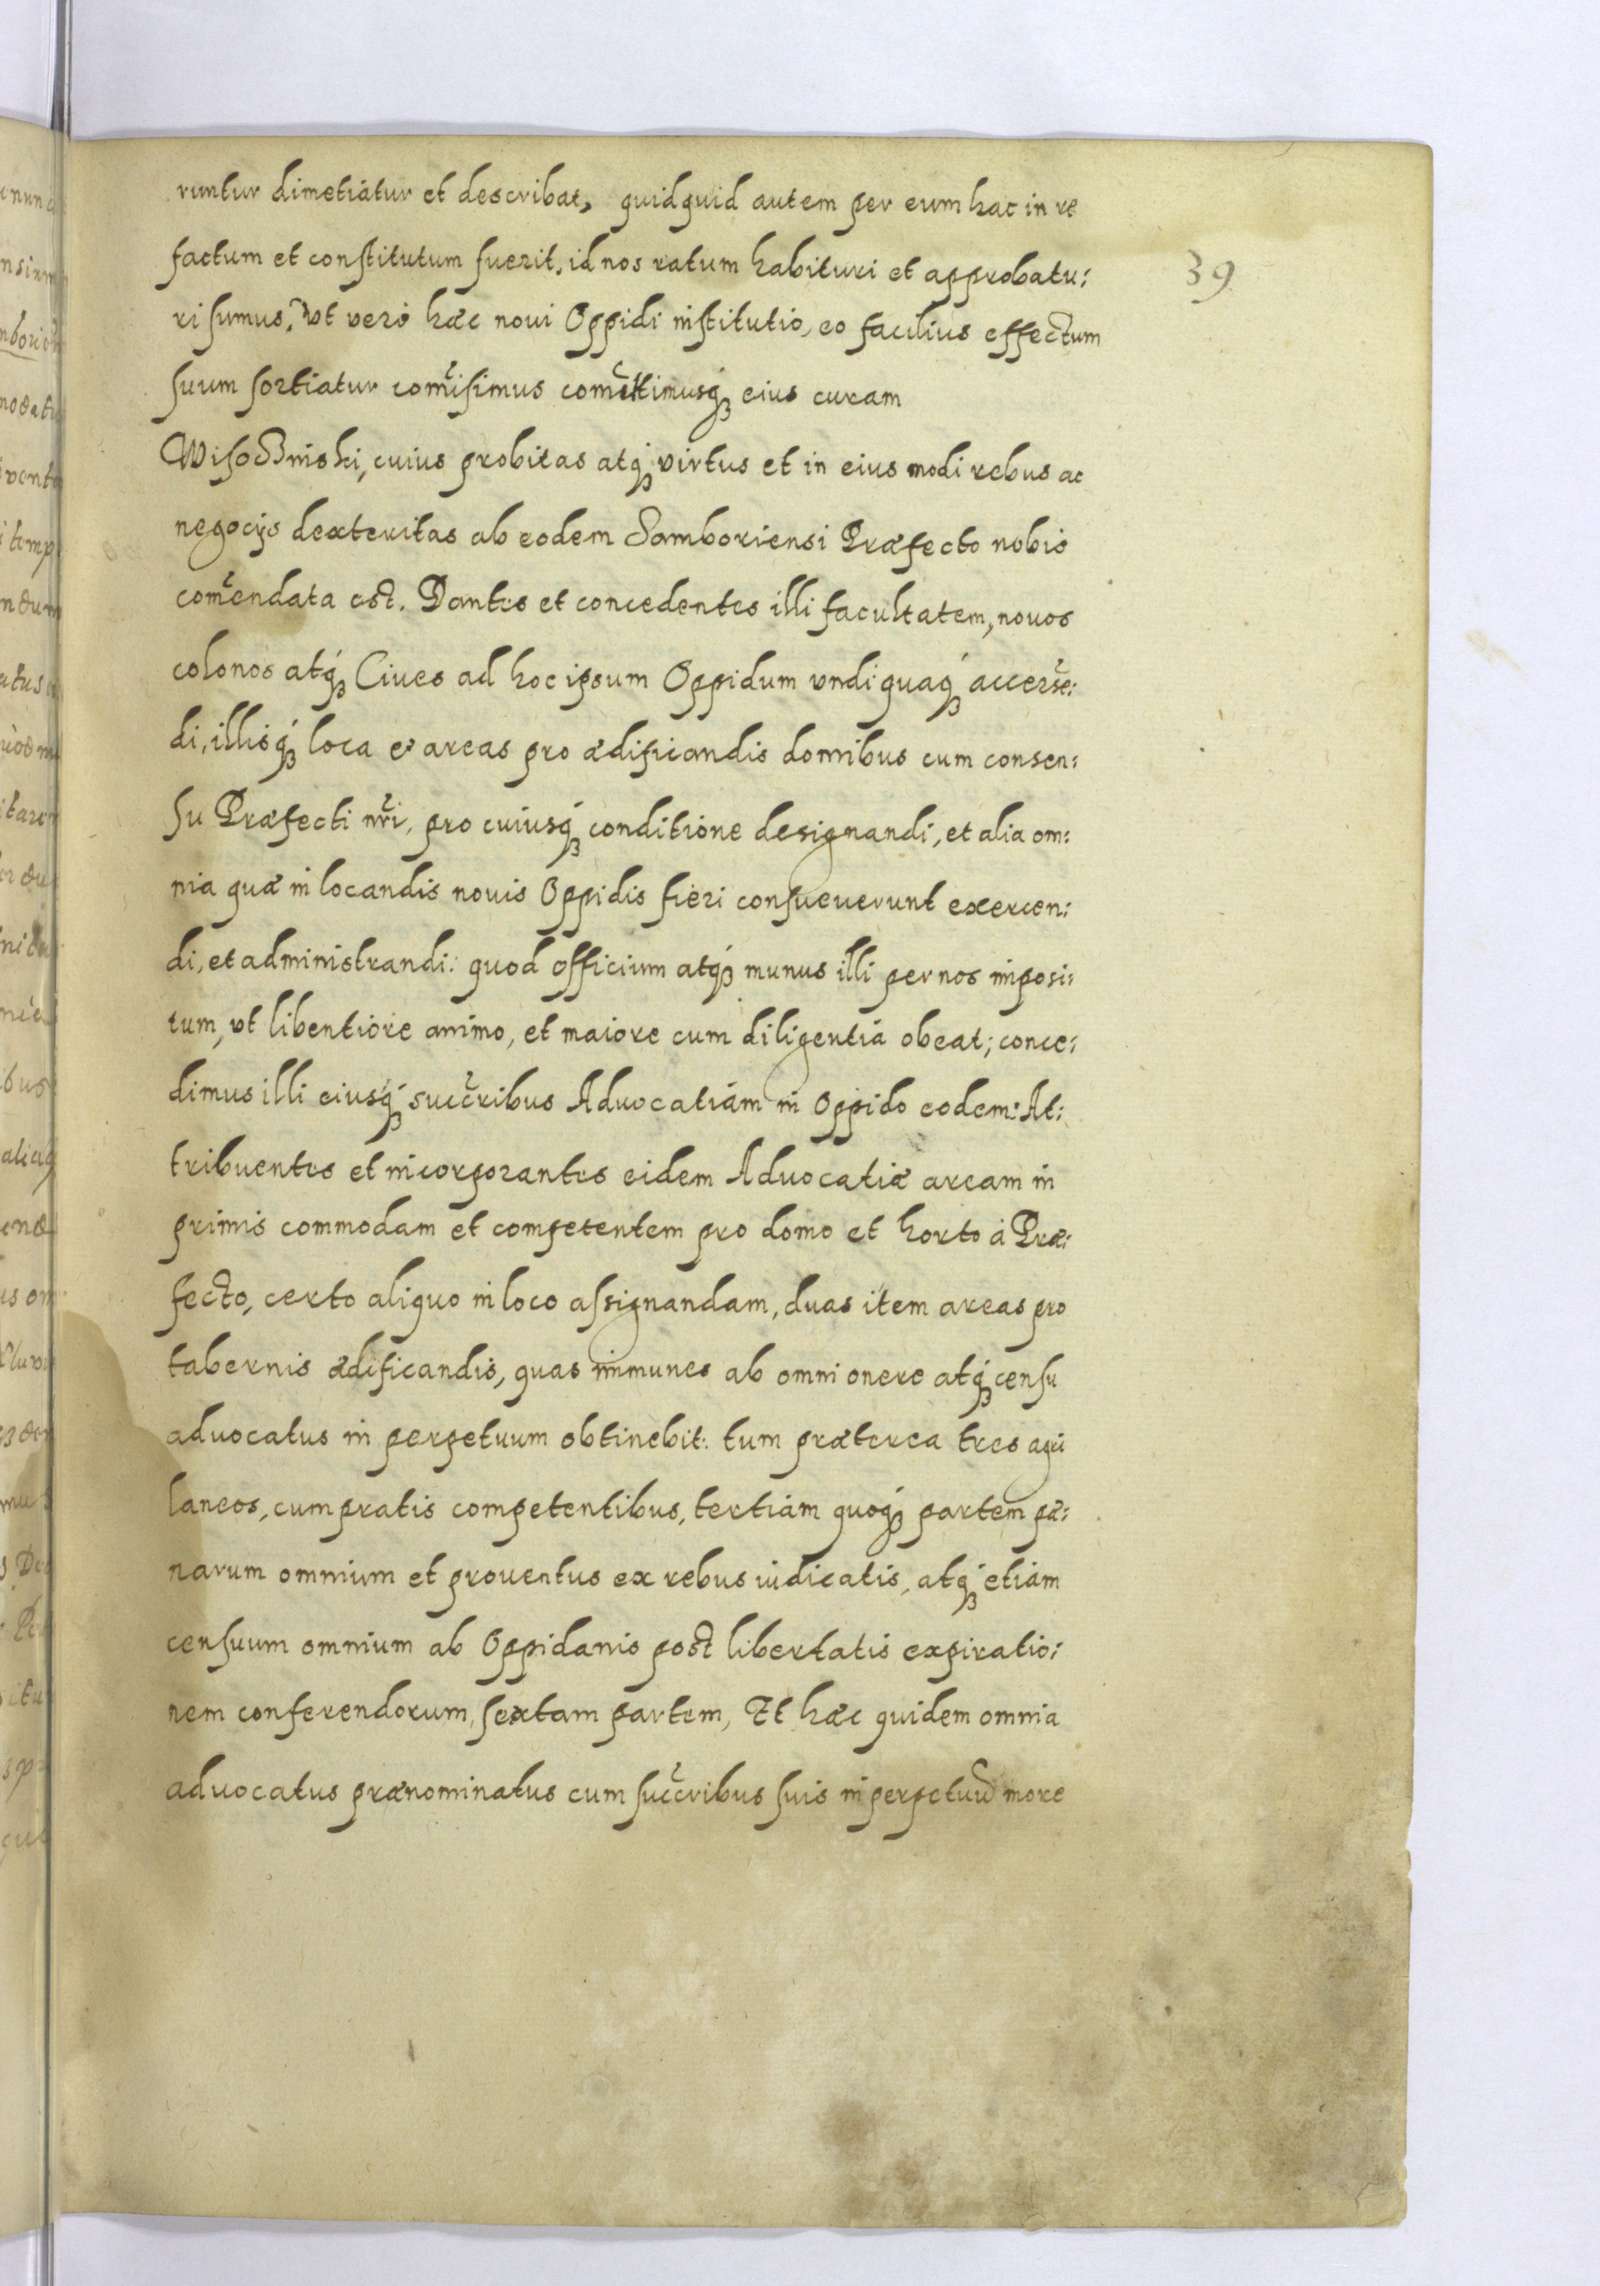 runtur dimetiatur et describat, quidquid autem per eum hac in re
factum et constitutum fuerit, id nos ratum habituri et approbatu:
39
ri sumus, Vt vero hæc noui Oppidi institutio, eo facilius effectum
suum sortiatur com̃isimus com̃ittimusq́ʒ eius curam
cuius probitas atq́ʒ virtus et in eius modi rebus ac
negocijs dexteritas ab eodem Samboriensi Præfecto nobis
com̃endata est. Dantes et concedentes illi facultatem, nouos
colonos atq́ʒ Ciues ad hoc ipsum Oppidum vndiquaq́ʒ accerse:
di, illisq́ʒ loca & areas pro ædificandis domibus cum consen:
su Præfecti nr̃i, pro cuiusq́ʒ conditione designandi, et alia om:
nia quæ in locandis nouis Oppidis fieri consueuerunt exercen:
di, et administrandi: quod officium atq́ʒ munus illi per nos imposi:
tum, vt libentiore animo, et maiore cum diligentia obeat; conce:
dimus illi eiusq́ʒ succ̃ribus Aduocatiam in Oppido eodem: At:
tribuentes et incorporantes eidem Aduocatiæ aream in
primis commodam et competentem pro domo et horto à Præ:
fecto, certo aliquo in loco assignandam, duas item areas pro
tabernis ædificandis, quas immunes ab omni onere atq́ʒ censu
aduocatus in perpetuum obtinebit: tum præterea tres agri
laneos, cum pratis competentibus, tertiam quoq́ʒ partem pæ:
narum omnium et prouentus ex rebus iudicatis, atq́ʒ etiam
censuum omnium ab Oppidanis post libertatis expiratio:
nem conferendorum, sextam partem, Et hæc quidem omnia
aduocatus prænominatus cum succ̃ribus suis in perpetuũ more